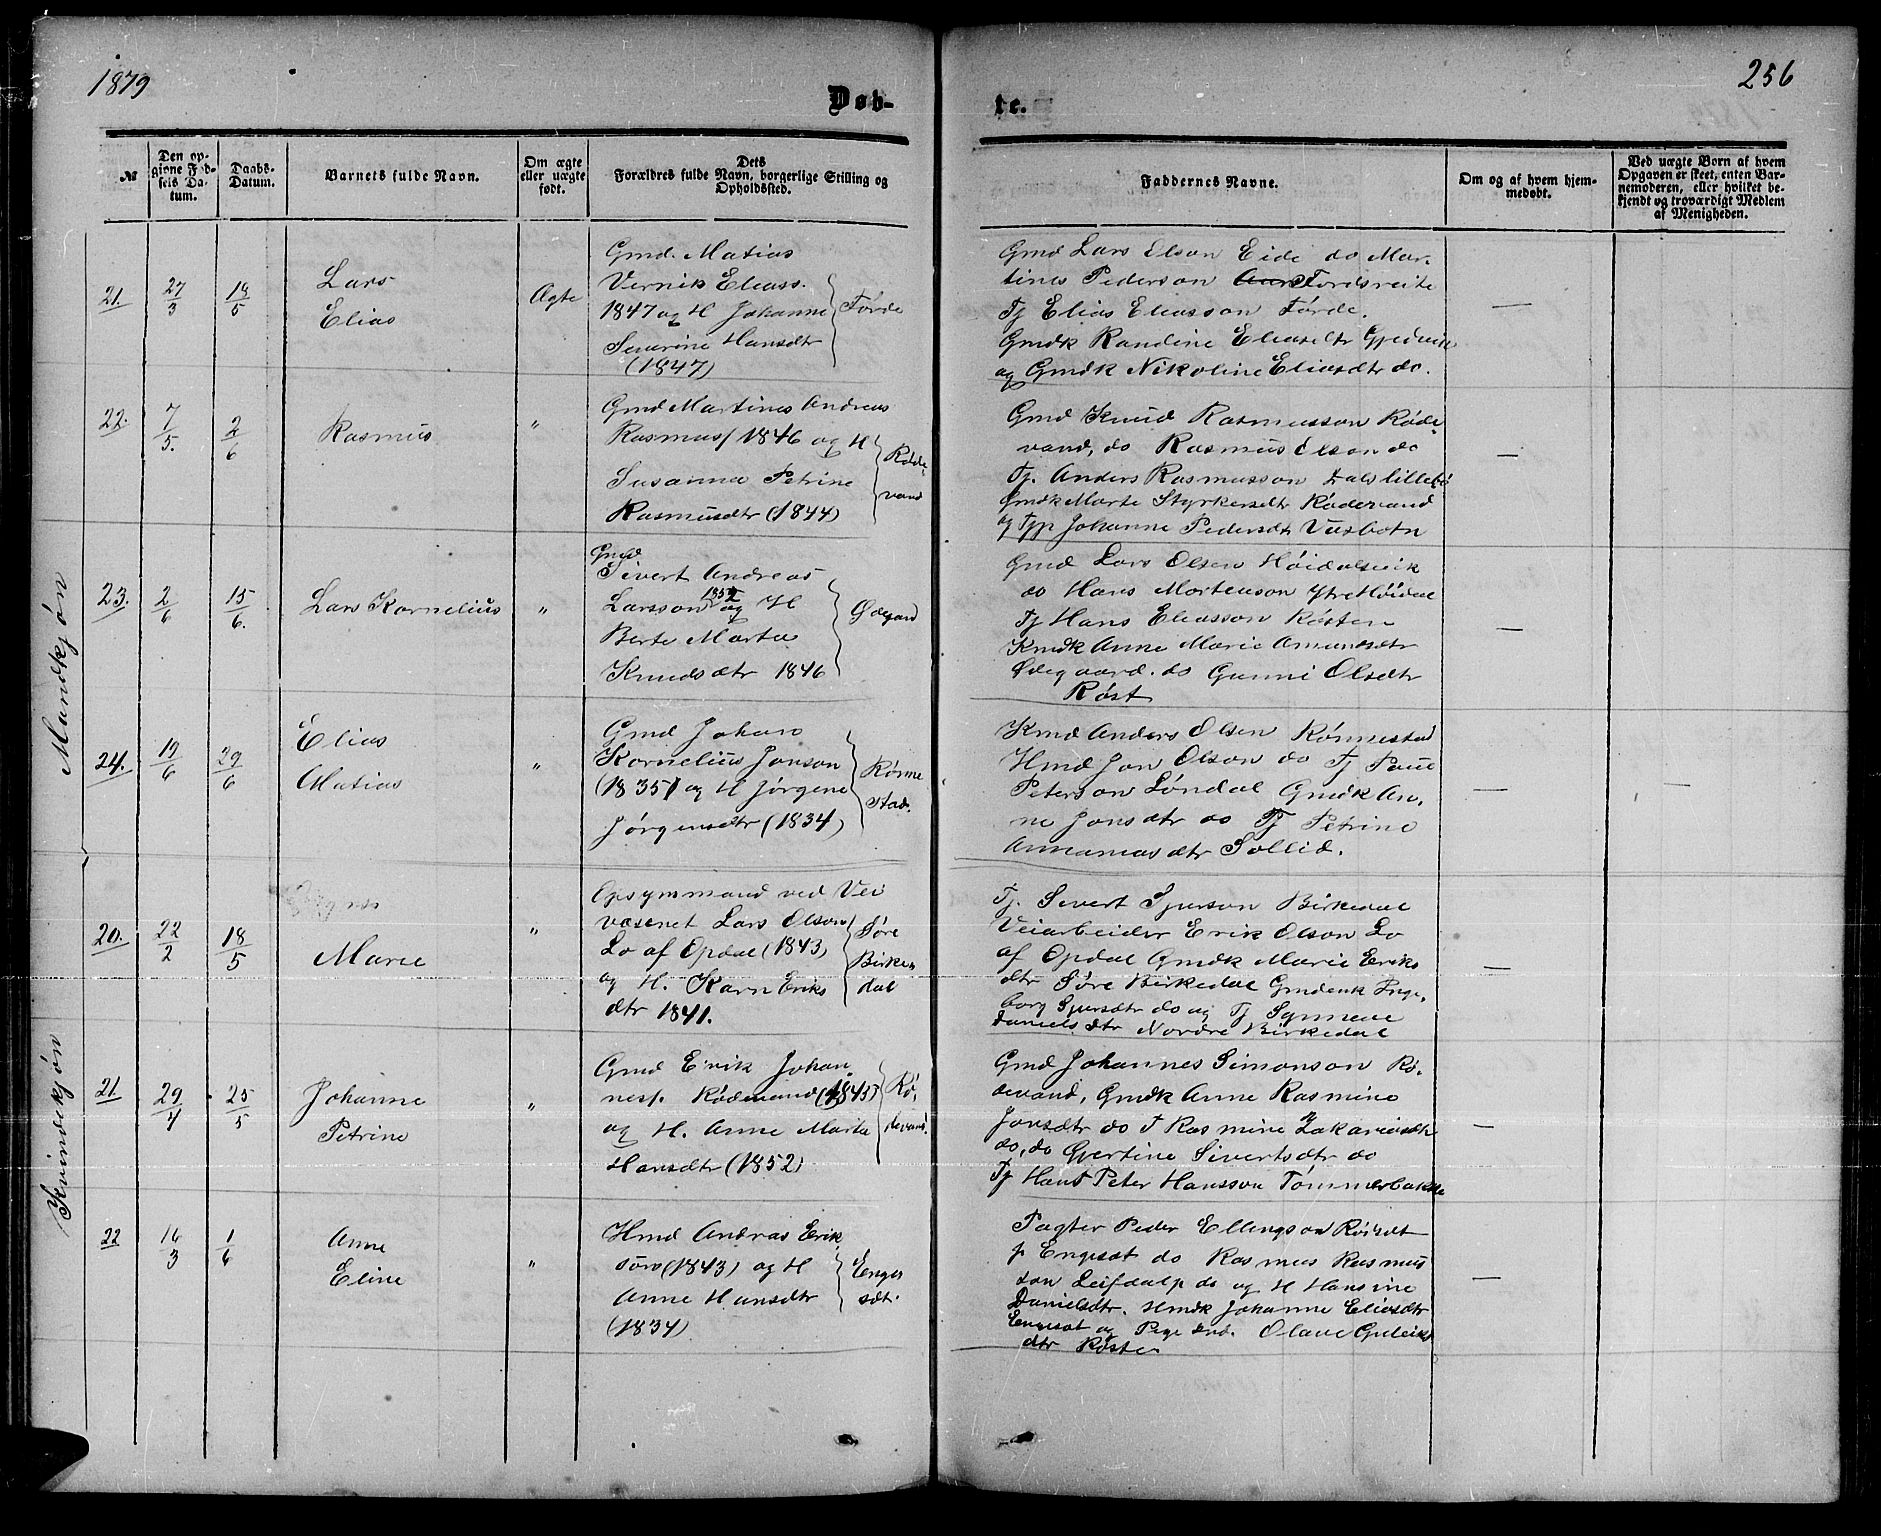 1879
256
Døb-
te.
№
Den op-
givne Fød-
sels Da-
tum.
Daabs-
Datum.
Barnets fulde Navn.
Om ægte
eller uægte
født.
Dets
Forældres fulde Navn, borgerlige Stilling og
Opholdssted.
Faddernes Navne.
Om og af hvem hjem-
medøbt.
Ved uægte Børn af hvem
Opgaven er skeet, enten Bar-
nemoderen, eller hvilket be-
kjendt og troværdigt Medlem
af Menigheden.
Mandkjøn
21. 27/3 18/5
Lars
Elias
Ægte
Gmd. Matias
Vernik Eliass.
1847 og H Johanne
Severine Hansdtr
(1847)
Førde
Gmd Lars Elson Eide do Mar-
tines Pederson Førdsreite
Tj Elias Eliasson Førde.
Gmdk Randine Eliasdtr
og Gmdk Nikoline Eliasdtr do.
—
22. 7/5. 2/6
Rasmus
"
Gmd Martines Andreas
Rasmuss 1846 og H
Susanna Petrine
Rasmusdtr (1844)
Røde-
vand
Gmd Knud Rasmusson Røde-
vand, do Rasmus Olson do
Tj. Anders Rasmusson
Gmdk Marte Styrkersdtr Rødevand
og Tjp Johanne Pedersdtr Vasbotn
—
23. 2/6 15/6.
Lars Kornelius
"
Gmd
Sivert Andreas
Larsson 1852 og H
Berte Marta
Knudsdtr 1846
Ødegard
Gmd Lars Olsen Høidalsvik
do Hans Mortenson Ytre Høidal
Tj Hans Eliasson Røsten
Kmdk Anne Marie Amundsdtr
Ødegaard. do Gunni Olsdtr
Røst
—
24. 19/6 29/6
Elias
Matias
"
Gmd Johan
Kornelius Jonson
(1835) og H Jørgine
Jørgensdtr (1834)
Rønne
stad.
Kmd Anders Olsen Rønnestad
Hmd Jon Olson do Tj Paul
Peterson Løndal Gmdk An-
ne Jonsdtr do Tj Petrine
Annaniasdtr Sollid.
—
—
Kvindekjøn
20. 22/2 18/5
Marie
"
Opsynmand ved Vei
væsenet Lars Olson
Lo af Opdal (1843)
og H. Karn Eriks
dtr 1841.
Søre
Birke-
dal
Tj. Sivert Sjurson Birkedal
Veiarbeider Erik Olson Lo
af Opdal Gmdk Marie Eriks
dtr Søre Birkedal Gmdenk Inge-
borg Sjursdtr do og Tj Synneve
Danielsdtr Nordre Birkedal
—
21 29/4 25/5
Johanne
Petrine
"
Gmd Erik Johan-
ness. Rødevand (1845)
og H. Anne Marta
Hansdtr (1852)
Rø-
devand.
Gmd Johannes Simonson Rø-
devand, Gmdk Anne Rasmine
Jonsdtr do T Rasmine Zakariasdtr
do, do Gjertine Sivertsdtr do
Tj Hans Peter Hansson Tømmerbakke
—
22 16/3 1/6
Anne
Eline
"
Hmd Andras Erik
søn (1843) og H
Anne Hansdtr
(1834)
Enge
sæt.
Pagter Peder Ellingson Røisæt
p Engesæt do Rasmus Rasmus
son Leifdal p do og H Hansine
Danielsdtr. Hmdk Johanne Eliasdtr
Engesæt og Pige Olave
dtr Røste
—